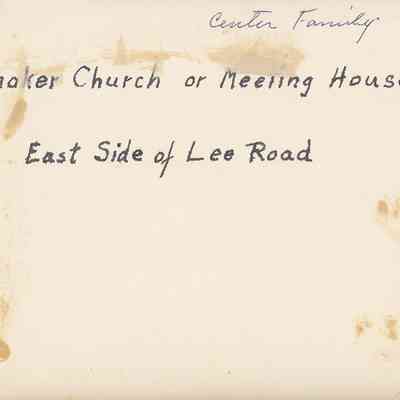 Center Family
haker Church or Meeting House
East Side of Lee Road